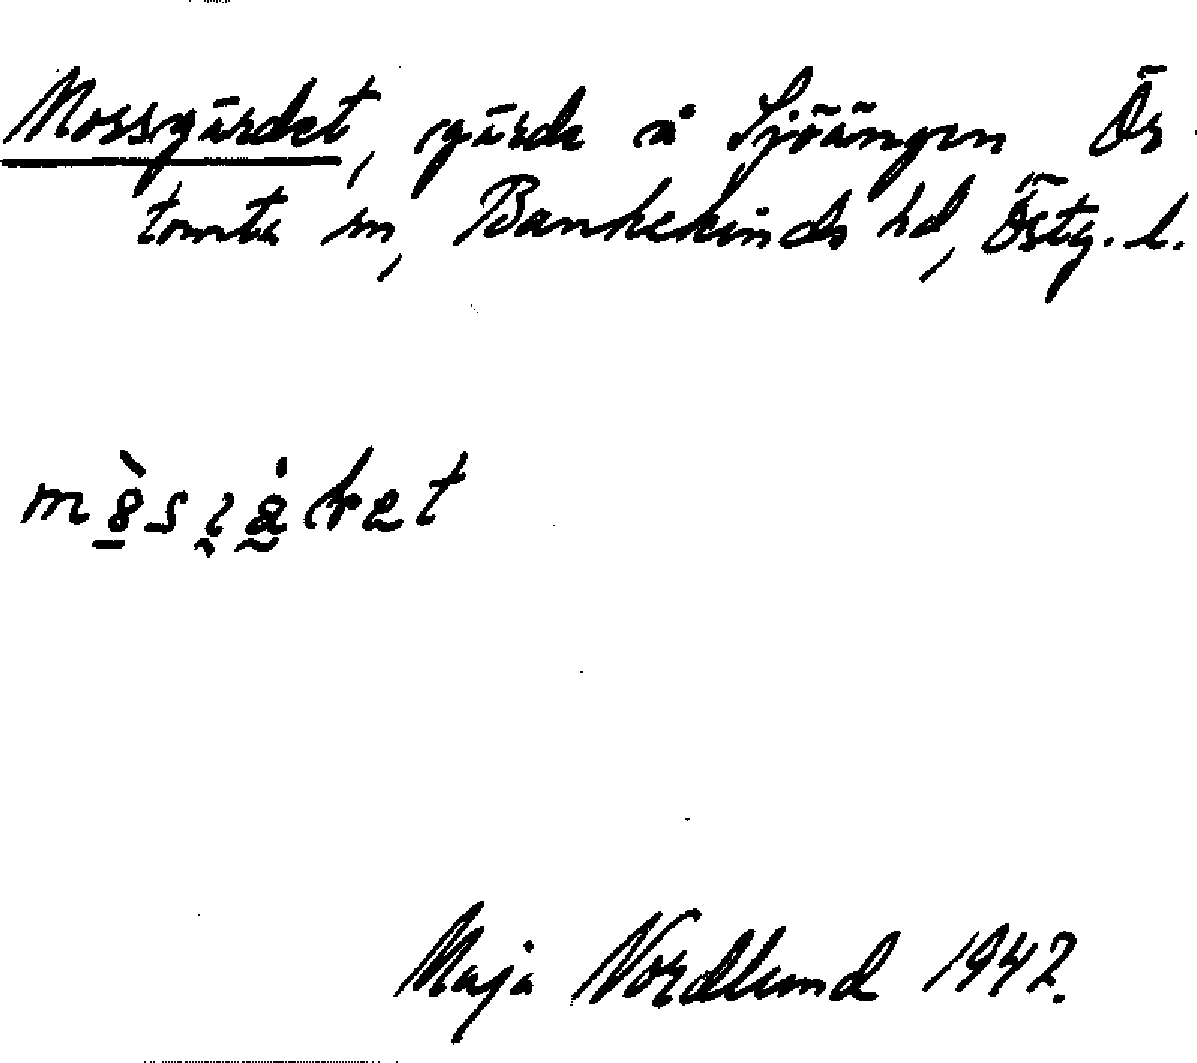 Mossgärdet, gärde å Sjöängen Ör
tomta sn, Bankekinds hd, Östg. l.
Maja Nordlund 1942.